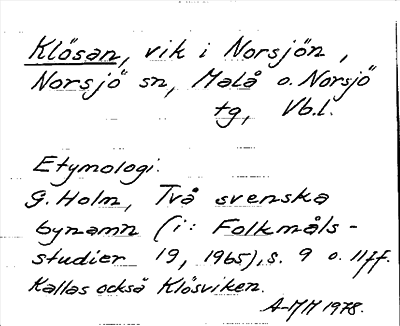 Klösan, vik i Norsjön,
Norsjö sn, Malå o. Norsjö
tg, Vb.l.
Etymologi.
G. Holm, Två svenska
bynamn (i: Folkmåls-
studier 19, 1965), s. 9 o. 11ff.
Kallas också Klösviken.
A-MM 1978.